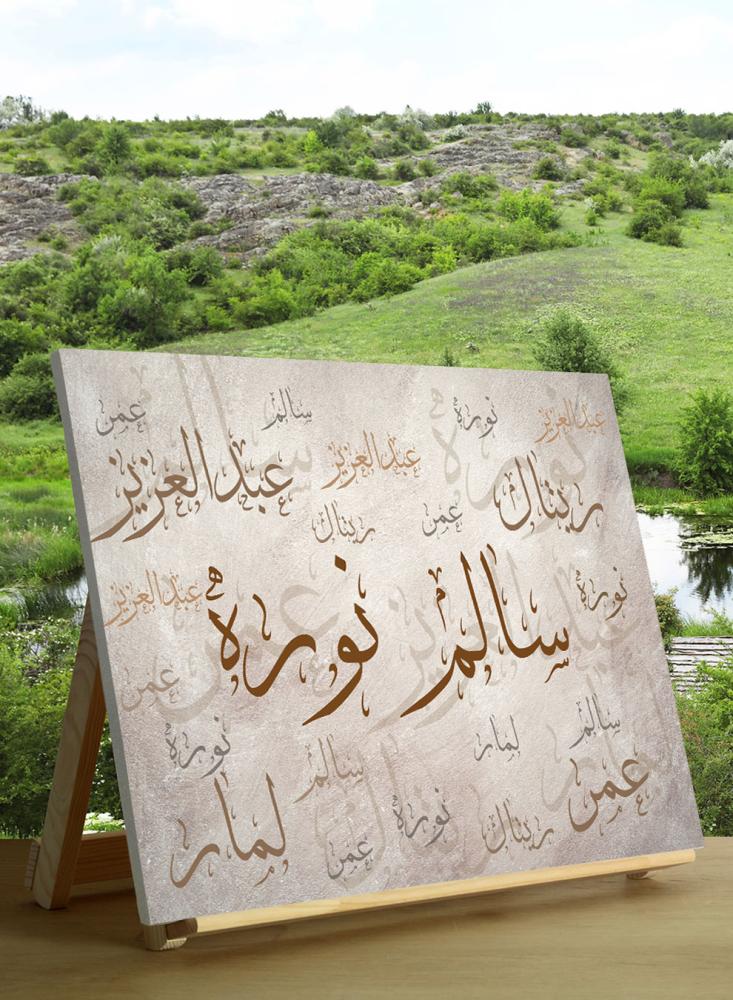 عبدالعزيز نوره سالم عمر
ريتال عبدالعزيز عبدالعزيز
عمر ريتال
نوره عبدالعزيز
سالم نوره
عمر
سالم لمار نوره
عمر سالم لمار
ريتال نوره عمر